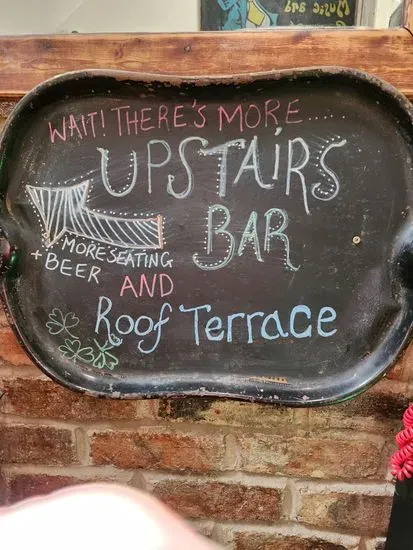 Music and
WAIT! THERE'S MORE.....
UPSTAIRS
BAR
MORE SEATING
+ BEER
AND
Roof Terrace